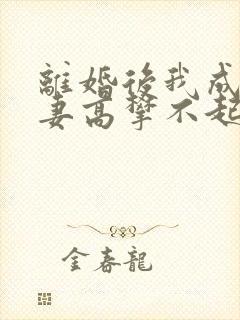 離婚後我成
妻高攀不起
金春龍